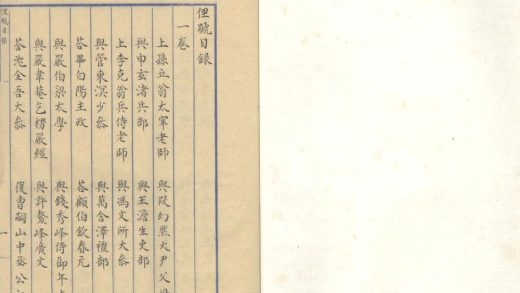 俚號目錄
一卷
上孫立翁太軍老師 與段幻然大尹父母
與申玄渚兵部 與王澹生吏部
上李克翁兵侍老師 與馮文所大參
與管東溟少參 與萬含澤禮部
答畢白陽主政 答顧伯欽春元
與嚴伯梁太學 與錢秀峰侍御年
與嚴韋菴乞楞嚴經 與許鰲峰廣文
答沈金吾大參 復曹嗣山中丞公
俚號目錄
一